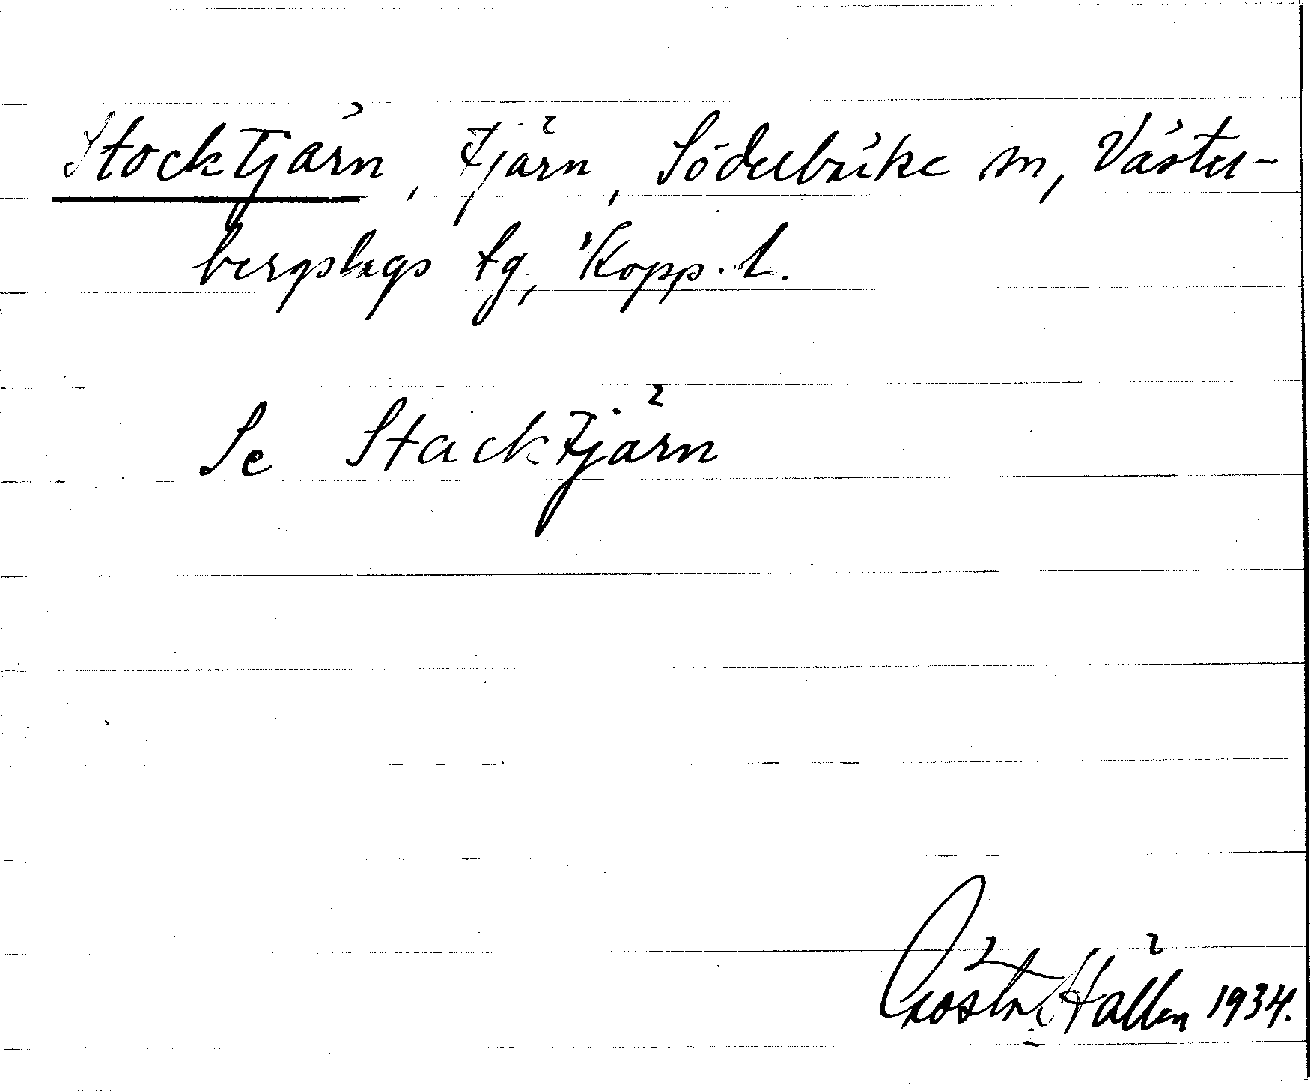 Stocktjärn, tjärn, Söderbärke sn, Väster-
bergslags tg, Kopp. l.
Se Stacktjärn
Gösta Hallén 1934.